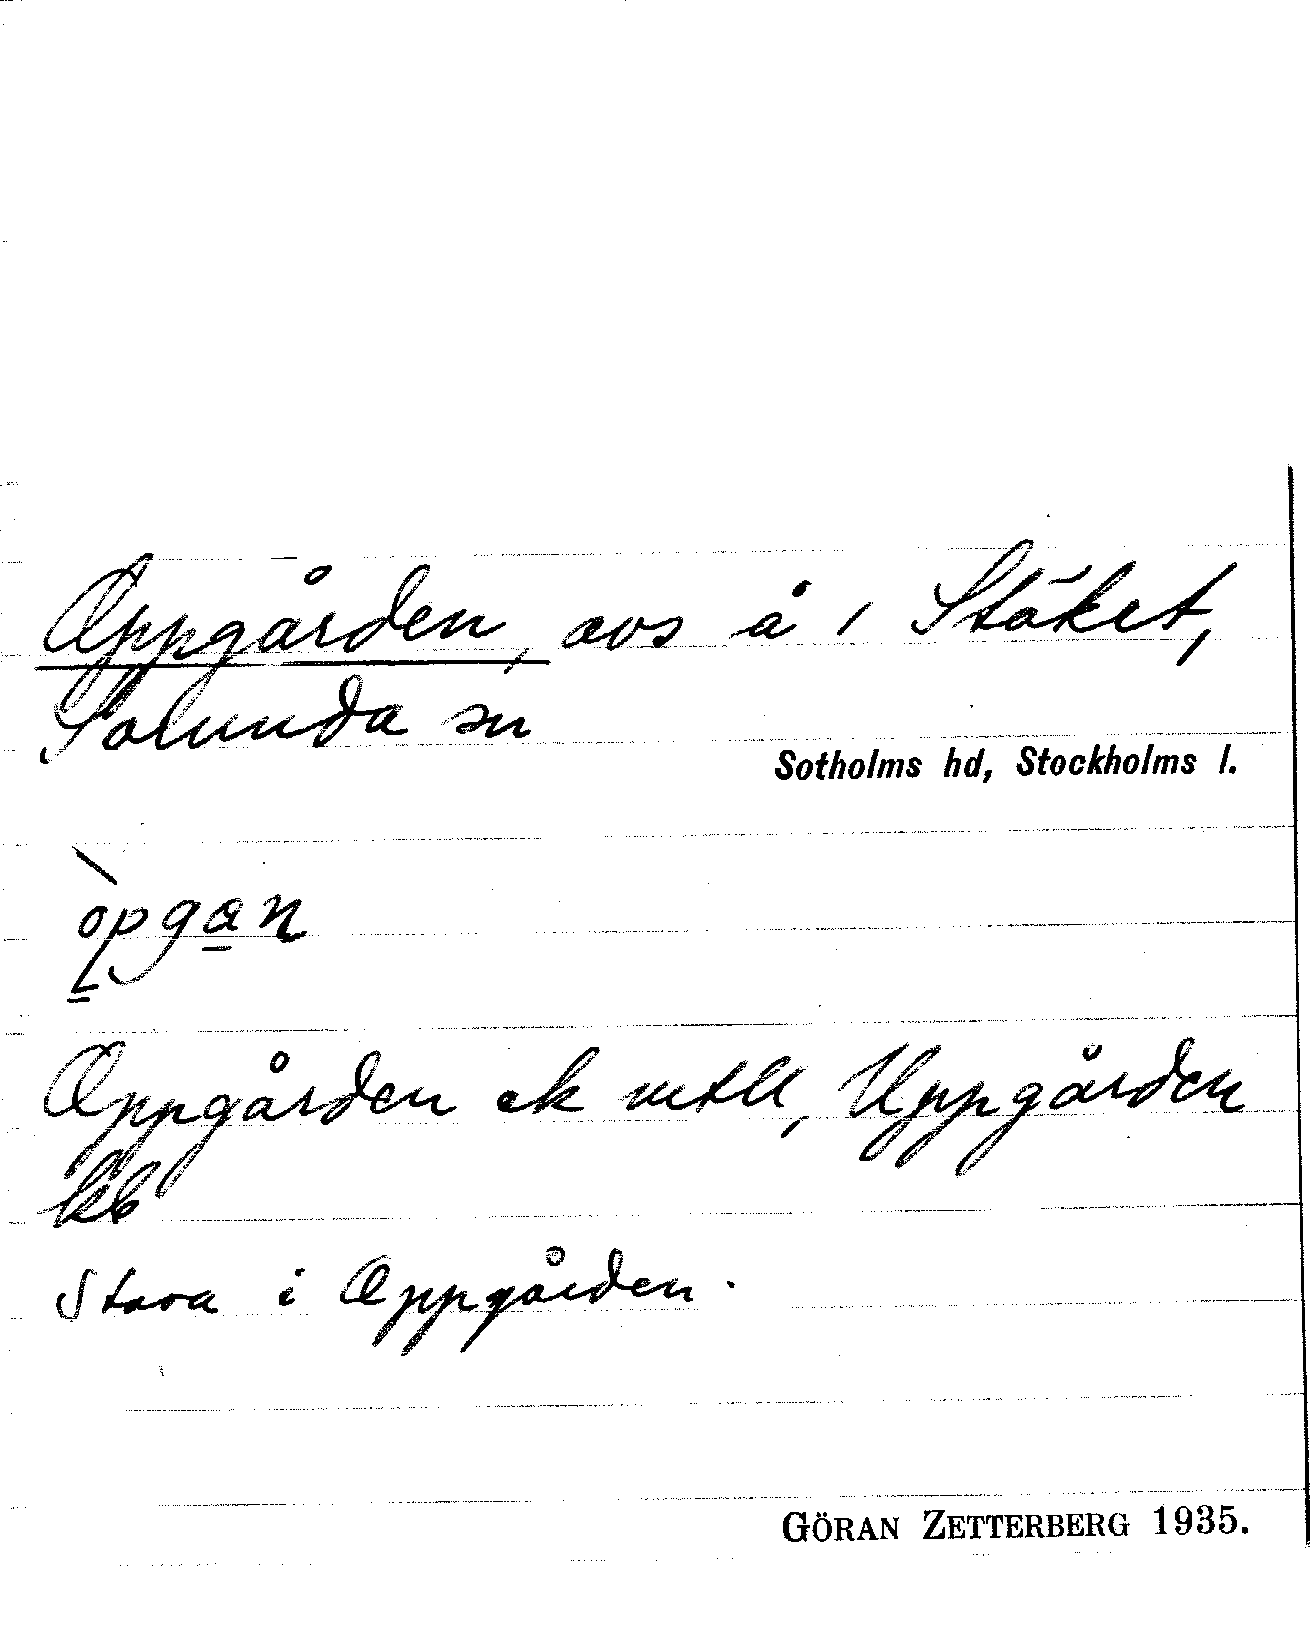 Oppgården, avs å 1 Stäket,
Sorunda sn
Sotholms hd, Stockholms l.
òpgan
Oppgården ek metll, Uppgården
kb
Stora i Oppgården.
GÖRAN ZETTERBERG 1935.